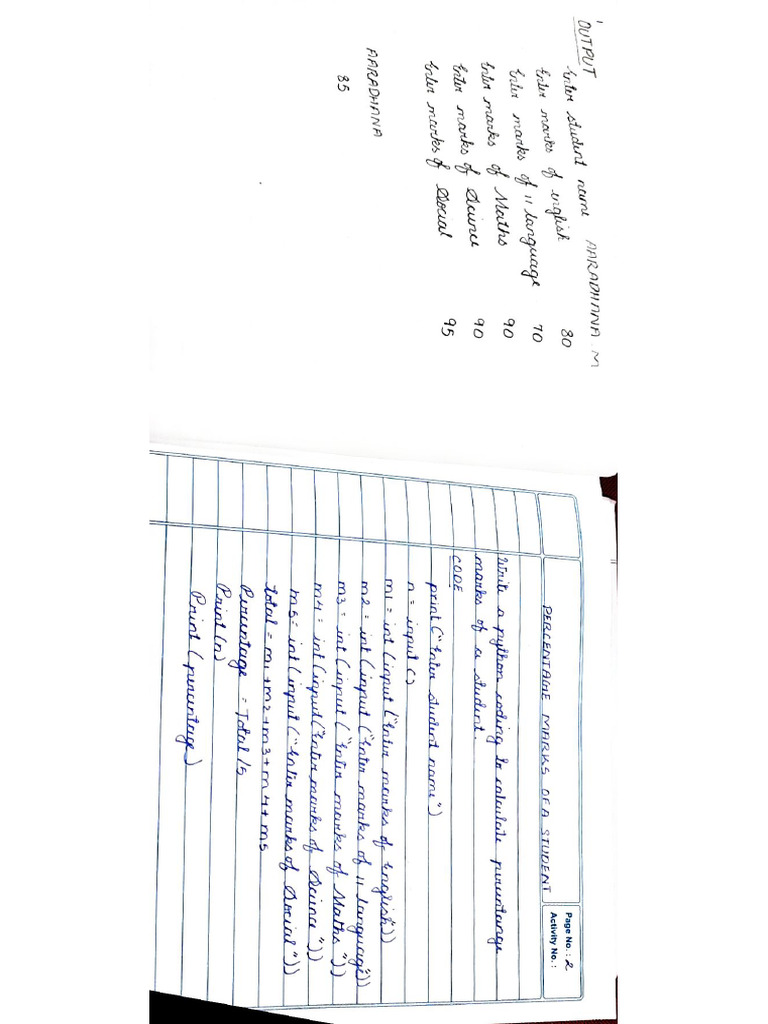 OUTPUT
Enter student name AARADHANA.M
Enter marks of english 80
Enter marks of II language 70
Enter marks of Maths 90
Enter marks of Science 90
Enter marks of Social 95
AARADHANA
85
Page No.: 2
Activity No.:
PERCENTAGE MARKS OF A STUDENT
Write a python coding to calculate percentange
marks of a student.
CODE
print ("Enter student name")
n = input ()
m1 = int (input ("Enter marks of English"))
m2 = int (input ("Enter marks of II language"))
m3 = int (input ("Enter marks of Maths"))
m4 = int (input ("Enter marks of Science"))
m5 = int (input ("Enter marks of Social"))
total = m1+m2+m3+m4+m5
Percentage = Total/5
Print (n)
Print (percentage)